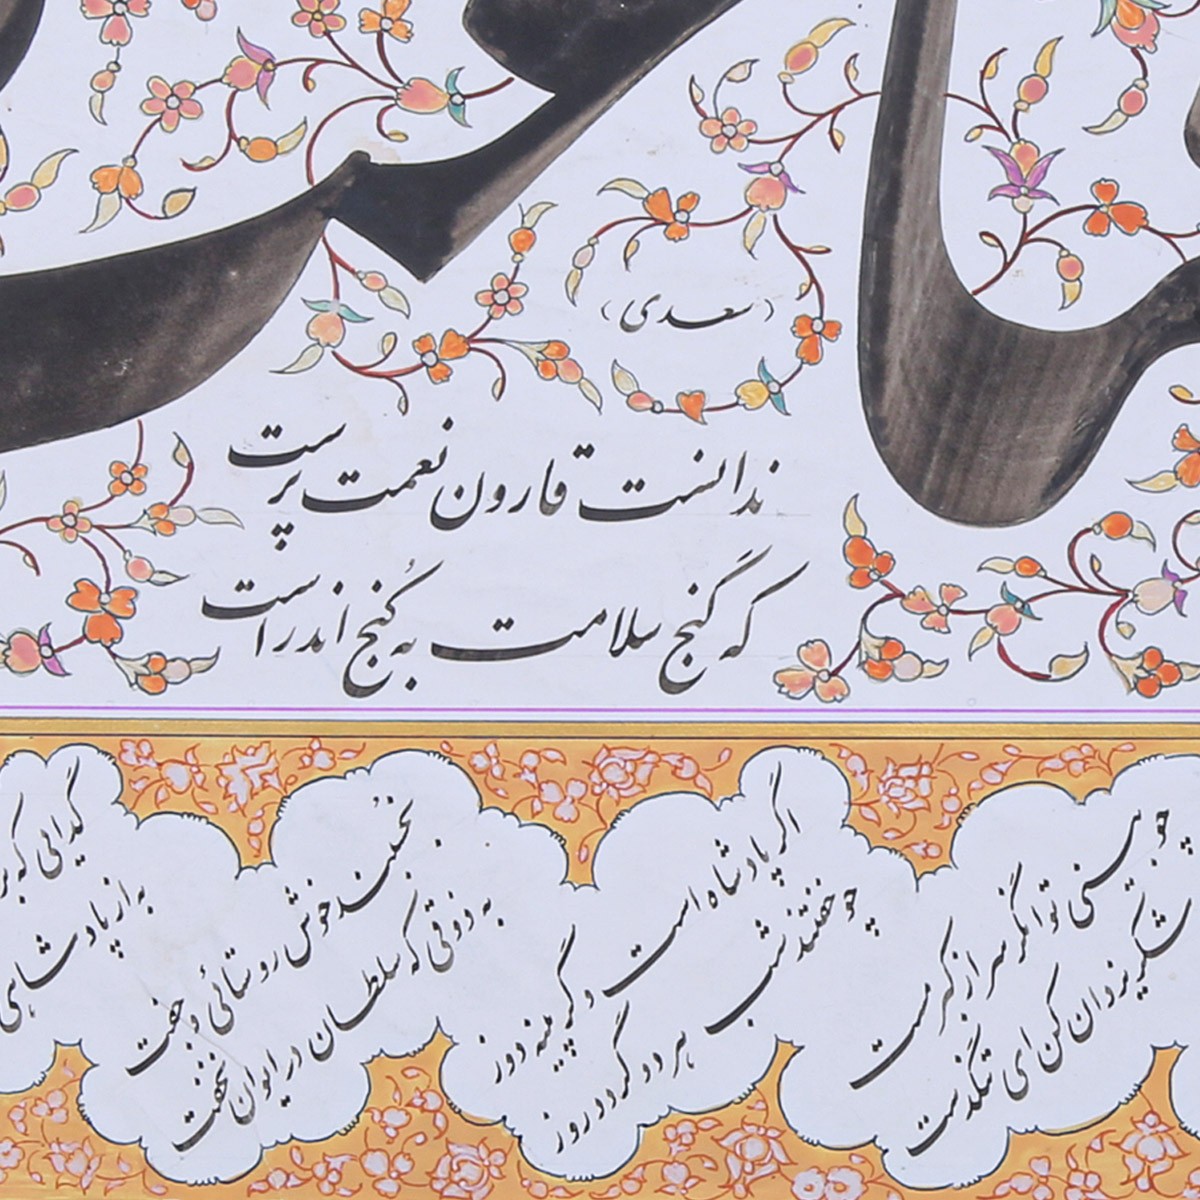 (سعدی)
ندانست قارون نعمت پرست
که گنج سلامت به کنج اندر است
چو بینی توانگر سر از کبر مست
شکر یزدان کن ای تنگدست
اگر پادشاه است و گر پینه دوز
چو خفتند شب هر دو گردد روز
بخسبند خوش روستائی و جفت
به ذوقی که سلطان در ایوان نخفت
گدائی که بر
به از پادشاهی